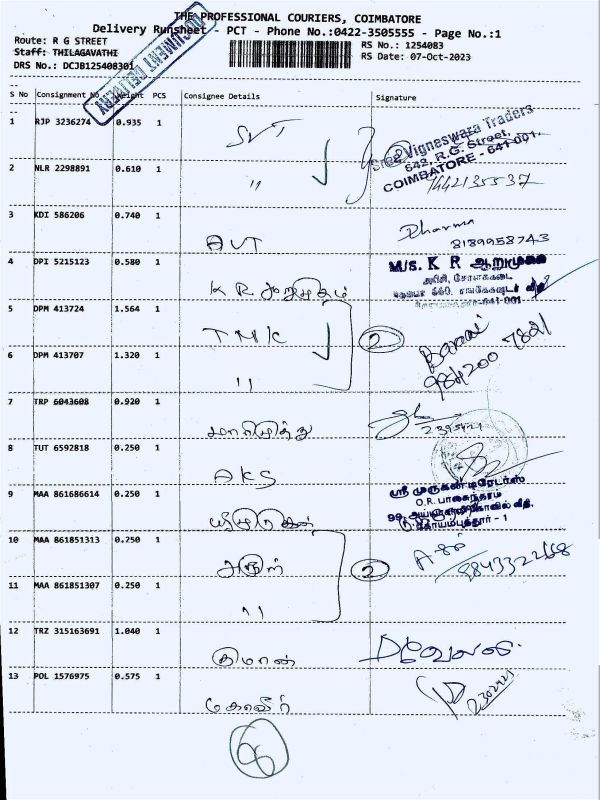 THE PROFESSIONAL COURIERS, COIMBATORE
Delivery Runsheet - PCT - Phone No.:0422-3505555 - Page No.:1
Route: R G STREET
RS No.: 1254083
Staff: THILAGAVATHI
RS Date: 07-Oct-2023
DRS No.: DCJB125408301
DOCUMENT DELIVERY
S No Consignment No Weight PCS Consignee Details Signature
1 RJP 3236274 0.935 1 SVT
Sree Vigneswara Traders
642, R.G. Street,
COIMBATORE - 641 001.
2 NLR 2298891 0.610 1 "
3 KDI 586206 0.740 1 AVT Dharma
8189958743
4 DPI 5215123 0.580 1 K R ஆறுமுகம்
M/s. K R ஆறுமுகம்
5 DPM 413724 1.564 1 TMK 2
6 DPM 413707 1.320 1 "
9842007821
7 TRP 6043608 0.920 1 மாரிமுத்து
8 TUT 6592818 0.250 1 AKS
9 MAA 861686614 0.250 1
ஸ்ரீ முருகன் டிரேடர்ஸ்
10 MAA 861851313 0.250 1 அருள் 2
11 MAA 861851307 0.250 1 "
12 TRZ 315163691 1.040 1
13 POL 1576975 0.575 1 மகாவீர்
8